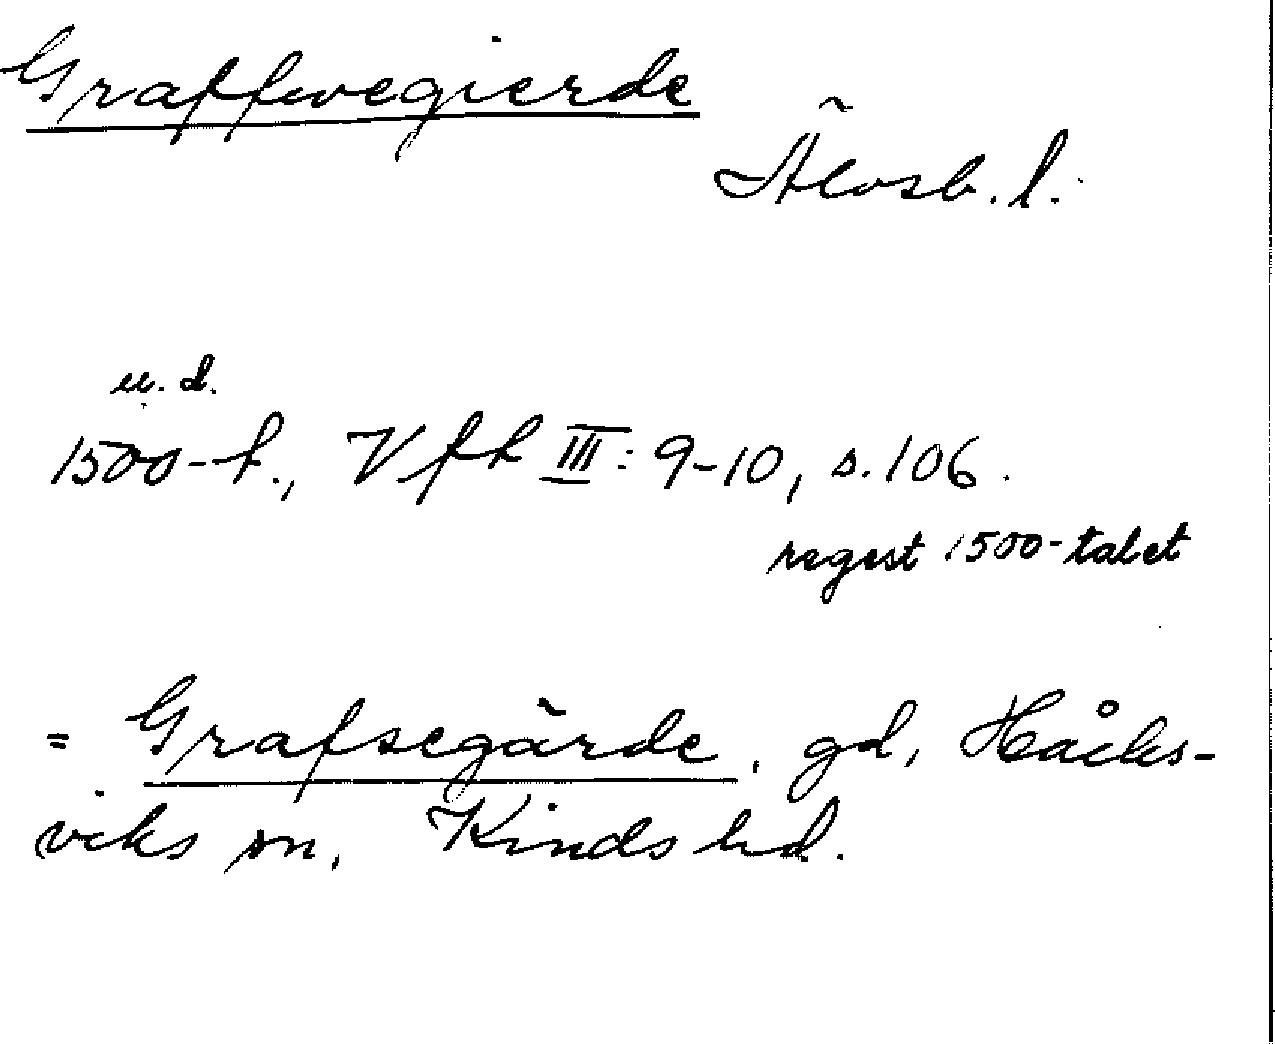 Graffwegierde
Älvsb. l.
u. d.
1500-t., Vfh III: 9-10, s. 106.
regest 1500-talet
= Grafsegärde, gd, Håcks-
viks sn, Kinds hd.